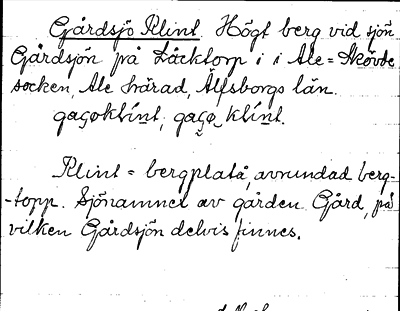 Gårdsjö Klint Högt berg vid sjön
Gårdsjön på Läcktorp i i Ale = Skövde
socken, Ale härad, Älfsborgs län.
Klint = bergplatå, avrundad berg-
-topp. Sjönamnet av gården Gård, på
vilken Gårdsjön delvis finnes.